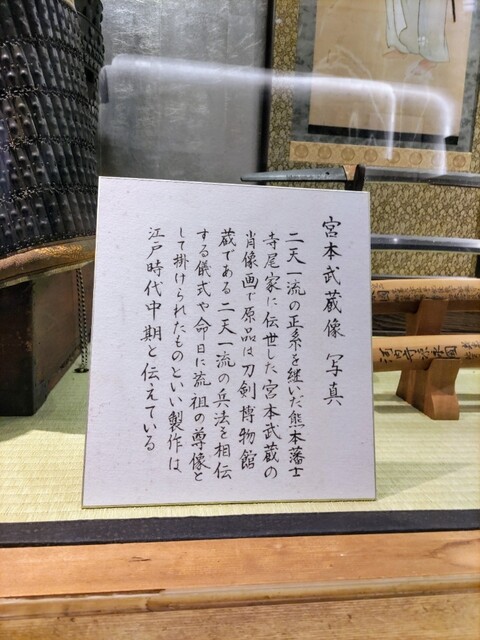 宮本武蔵像 写真
二天一流の正系を継いだ熊本藩士
寺尾家に伝世した宮本武蔵の
肖像画で原品は刀剣博物館
蔵である二天一流の兵法を相伝
する儀式や命日に流祖の尊像と
して掛けられたものといい製作は
江戸時代中期と伝えている